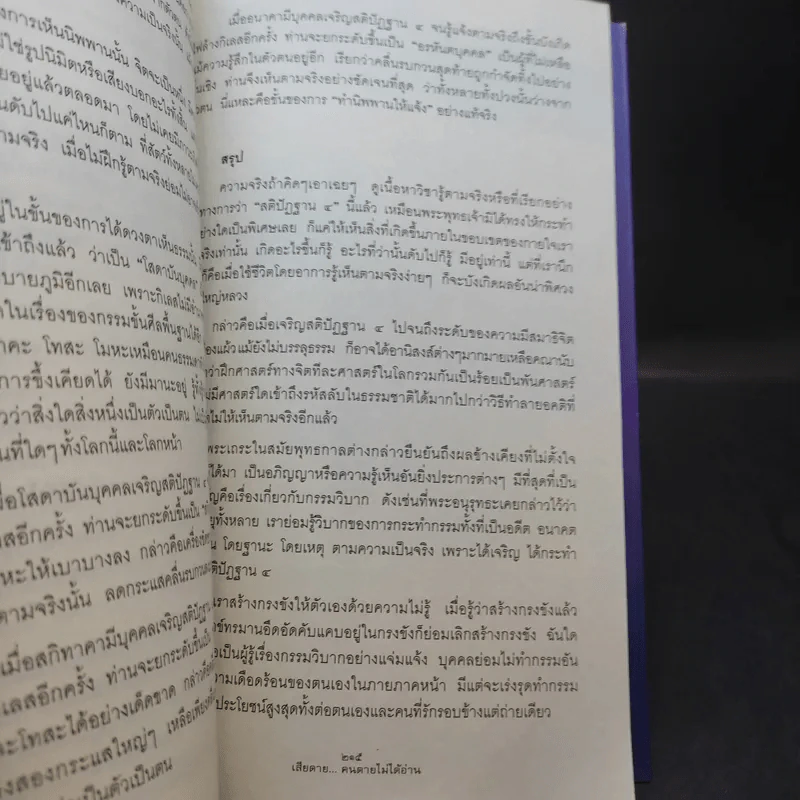 การเห็นนิพพานนั้น จิตจะเป็น
ไม่ใช่รูปนิมิตหรือเสียงบอกอะไร
อยู่แล้วตลอดมา โดยไม่เคยมี
ดับไปแค่ไหนก็ตาม ที่สัตว์ทั้งหลาย
ตามจริง เมื่อไม่ฝึกรู้ตามจริงย่อม
อยู่ในชั้นของการได้ดวงตาเห็นธรรม
เข้าถึงแล้ว ว่าเป็น "โสดาบันบุคคล"
บายภูมิอีกเลย เพราะกิเลสไม่มี
ในเรื่องของกรรมขั้นศีลพื้นฐานได้
ราคะ โทสะ โมหะเหมือนคนธรรม
การขึ้งเคียดได้ ยังมีมานะอยู่ รู้
ว่าสิ่งใดสิ่งหนึ่งเป็นตัวเป็นตน
นที่ใดๆ ทั้งโลกนี้และโลกหน้า
เมื่อโสดาบันบุคคลเจริญสติปัฏฐาน ๔
เลสอีกครั้ง ท่านจะยกระดับขึ้นเป็น
หะให้เบาบางลง กล่าวคือเครื่อง
ตามจริงนั้น ลดกระแสคลื่นรบกวน
เมื่อสกิทาคามีบุคคลเจริญสติปัฏฐาน
เลสอีกครั้ง ท่านจะยกระดับขึ้นเป็น
ะโทสะได้อย่างเด็ดขาด กล่าวคือ
งสองกระแสใหญ่ๆ เหลือเพียง
เป็นตัวเป็นตน
เมื่ออนาคามีบุคคลเจริญสติปัฏฐาน ๔ จนรู้แจ้งตามจริงถึงขั้นบังเกิด
ไฟล้างกิเลสอีกครั้ง ท่านจะยกระดับขึ้นเป็น "อรหันตบุคคล" เป็นผู้ที่ไม่เหลือ
แม้ความรู้สึกในตัวตนอยู่อีก เรียกว่าคลื่นรบกวนสุดท้ายถูกกำจัดทิ้งไปอย่าง
สิ้นเชิง ท่านจึงเห็นตามจริงอย่างชัดเจนที่สุด ว่าทั้งหลายทั้งปวงนั้นว่างจาก
ตัวตน นี่แหละคือขั้นของการ "ทำนิพพานให้แจ้ง" อย่างแท้จริง
สรุป
ความจริงถ้าคิดๆเอาเฉยๆ ดูเนื้อหาวิชารู้ตามจริงหรือที่เรียกอย่าง
ทางการว่า "สติปัฏฐาน ๔" นี้แล้ว เหมือนพระพุทธเจ้ามิได้ทรงให้กระทำ
อย่างใดเป็นพิเศษเลย ก็แค่ให้เห็นสิ่งที่เกิดขึ้นภายในขอบเขตของกายใจเรา
จริงเท่านั้น เกิดอะไรขึ้นก็รู้ อะไรที่ว่านั้นดับไปก็รู้ มีอยู่เท่านี้ แต่ที่เรานึก
ก็คือเมื่อใช้ชีวิตโดยอาการรู้เห็นตามจริงง่ายๆ ก็จะบังเกิดผลอันน่าพิศวง
ใหญ่หลวง
กล่าวคือเมื่อเจริญสติปัฏฐาน ๔ ไปจนถึงระดับของความมีสมาธิจิต
องแผ้วแม้ยังไม่บรรลุธรรม ก็อาจได้อานิสงส์ต่างๆมากมายเหลือคณานับ
ว่าฝึกศาสตร์ทางจิตทีละศาสตร์ในโลกรวมกันเป็นร้อยเป็นพันศาสตร์
ม่มีศาสตร์ใดเข้าถึงรหัสลับในธรรมชาติได้มากไปกว่าวิธีทำลายอคติที่
งไม่ให้เห็นตามจริงอีกแล้ว
พระเถระในสมัยพุทธกาลต่างกล่าวยืนยันถึงผลข้างเคียงที่ไม่ตั้งใจ
ได้มา เป็นอภิญญาหรือความรู้เห็นอันยิ่งประการต่างๆ มีที่สุดที่เป็น
ญคือเรื่องเกี่ยวกับกรรมวิบาก ดังเช่นที่พระอนุรุทธะเคยกล่าวไว้ว่า
ยุทั้งหลาย เราย่อมรู้วิบากของการกระทำกรรมทั้งที่เป็นอดีต อนาคต
น โดยฐานะ โดยเหตุ ตามความเป็นจริง เพราะได้เจริญ ได้กระทำ
ติปัฏฐาน ๔
เราสร้างกรงขังให้ตัวเองด้วยความไม่รู้ เมื่อรู้ว่าสร้างกรงขังแล้ว
งทรมานอึดอัดคับแคบอยู่ในกรงขังก็ย่อมเลิกสร้างกรงขัง ฉันใด
อเป็นผู้รู้เรื่องกรรมวิบากอย่างแจ่มแจ้ง บุคคลย่อมไม่ทำกรรมอัน
วามเดือดร้อนของตนเองในภายภาคหน้า มีแต่จะเร่งรุดทำกรรม
ประโยชน์สูงสุดทั้งต่อตนเองและคนที่รักรอบข้างแต่ถ่ายเดียว
๒๑๕
เสียดาย... คนตายไม่ได้อ่าน